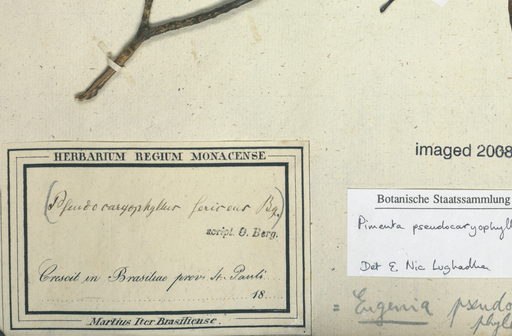 HERBARIUM REGIUM MONACENSE
(Pseudocaryophyllus sericeus Bg.)
script. O. Berg.
Crescit in Brasiliae prov. St. Pauli
18
Martius Iter Brasiliense.
imaged 2008
Botanische Staatssammlung
Pimenta pseudocaryophyll
Det E. Nic Lughadha
= Eugenia pseudo
phyll